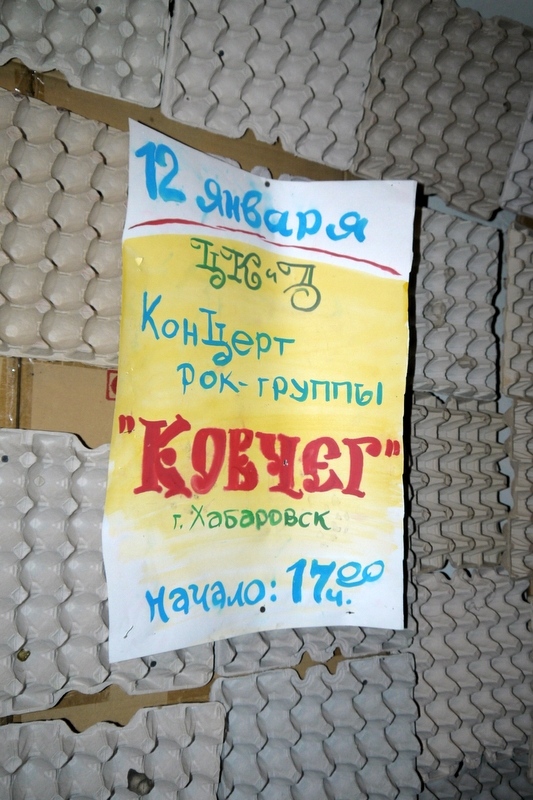 12 января
ЦКиД
Концерт
рок-группы
"КОВЧЕГ"
г. Хабаровск
начало: 17 00 ч.